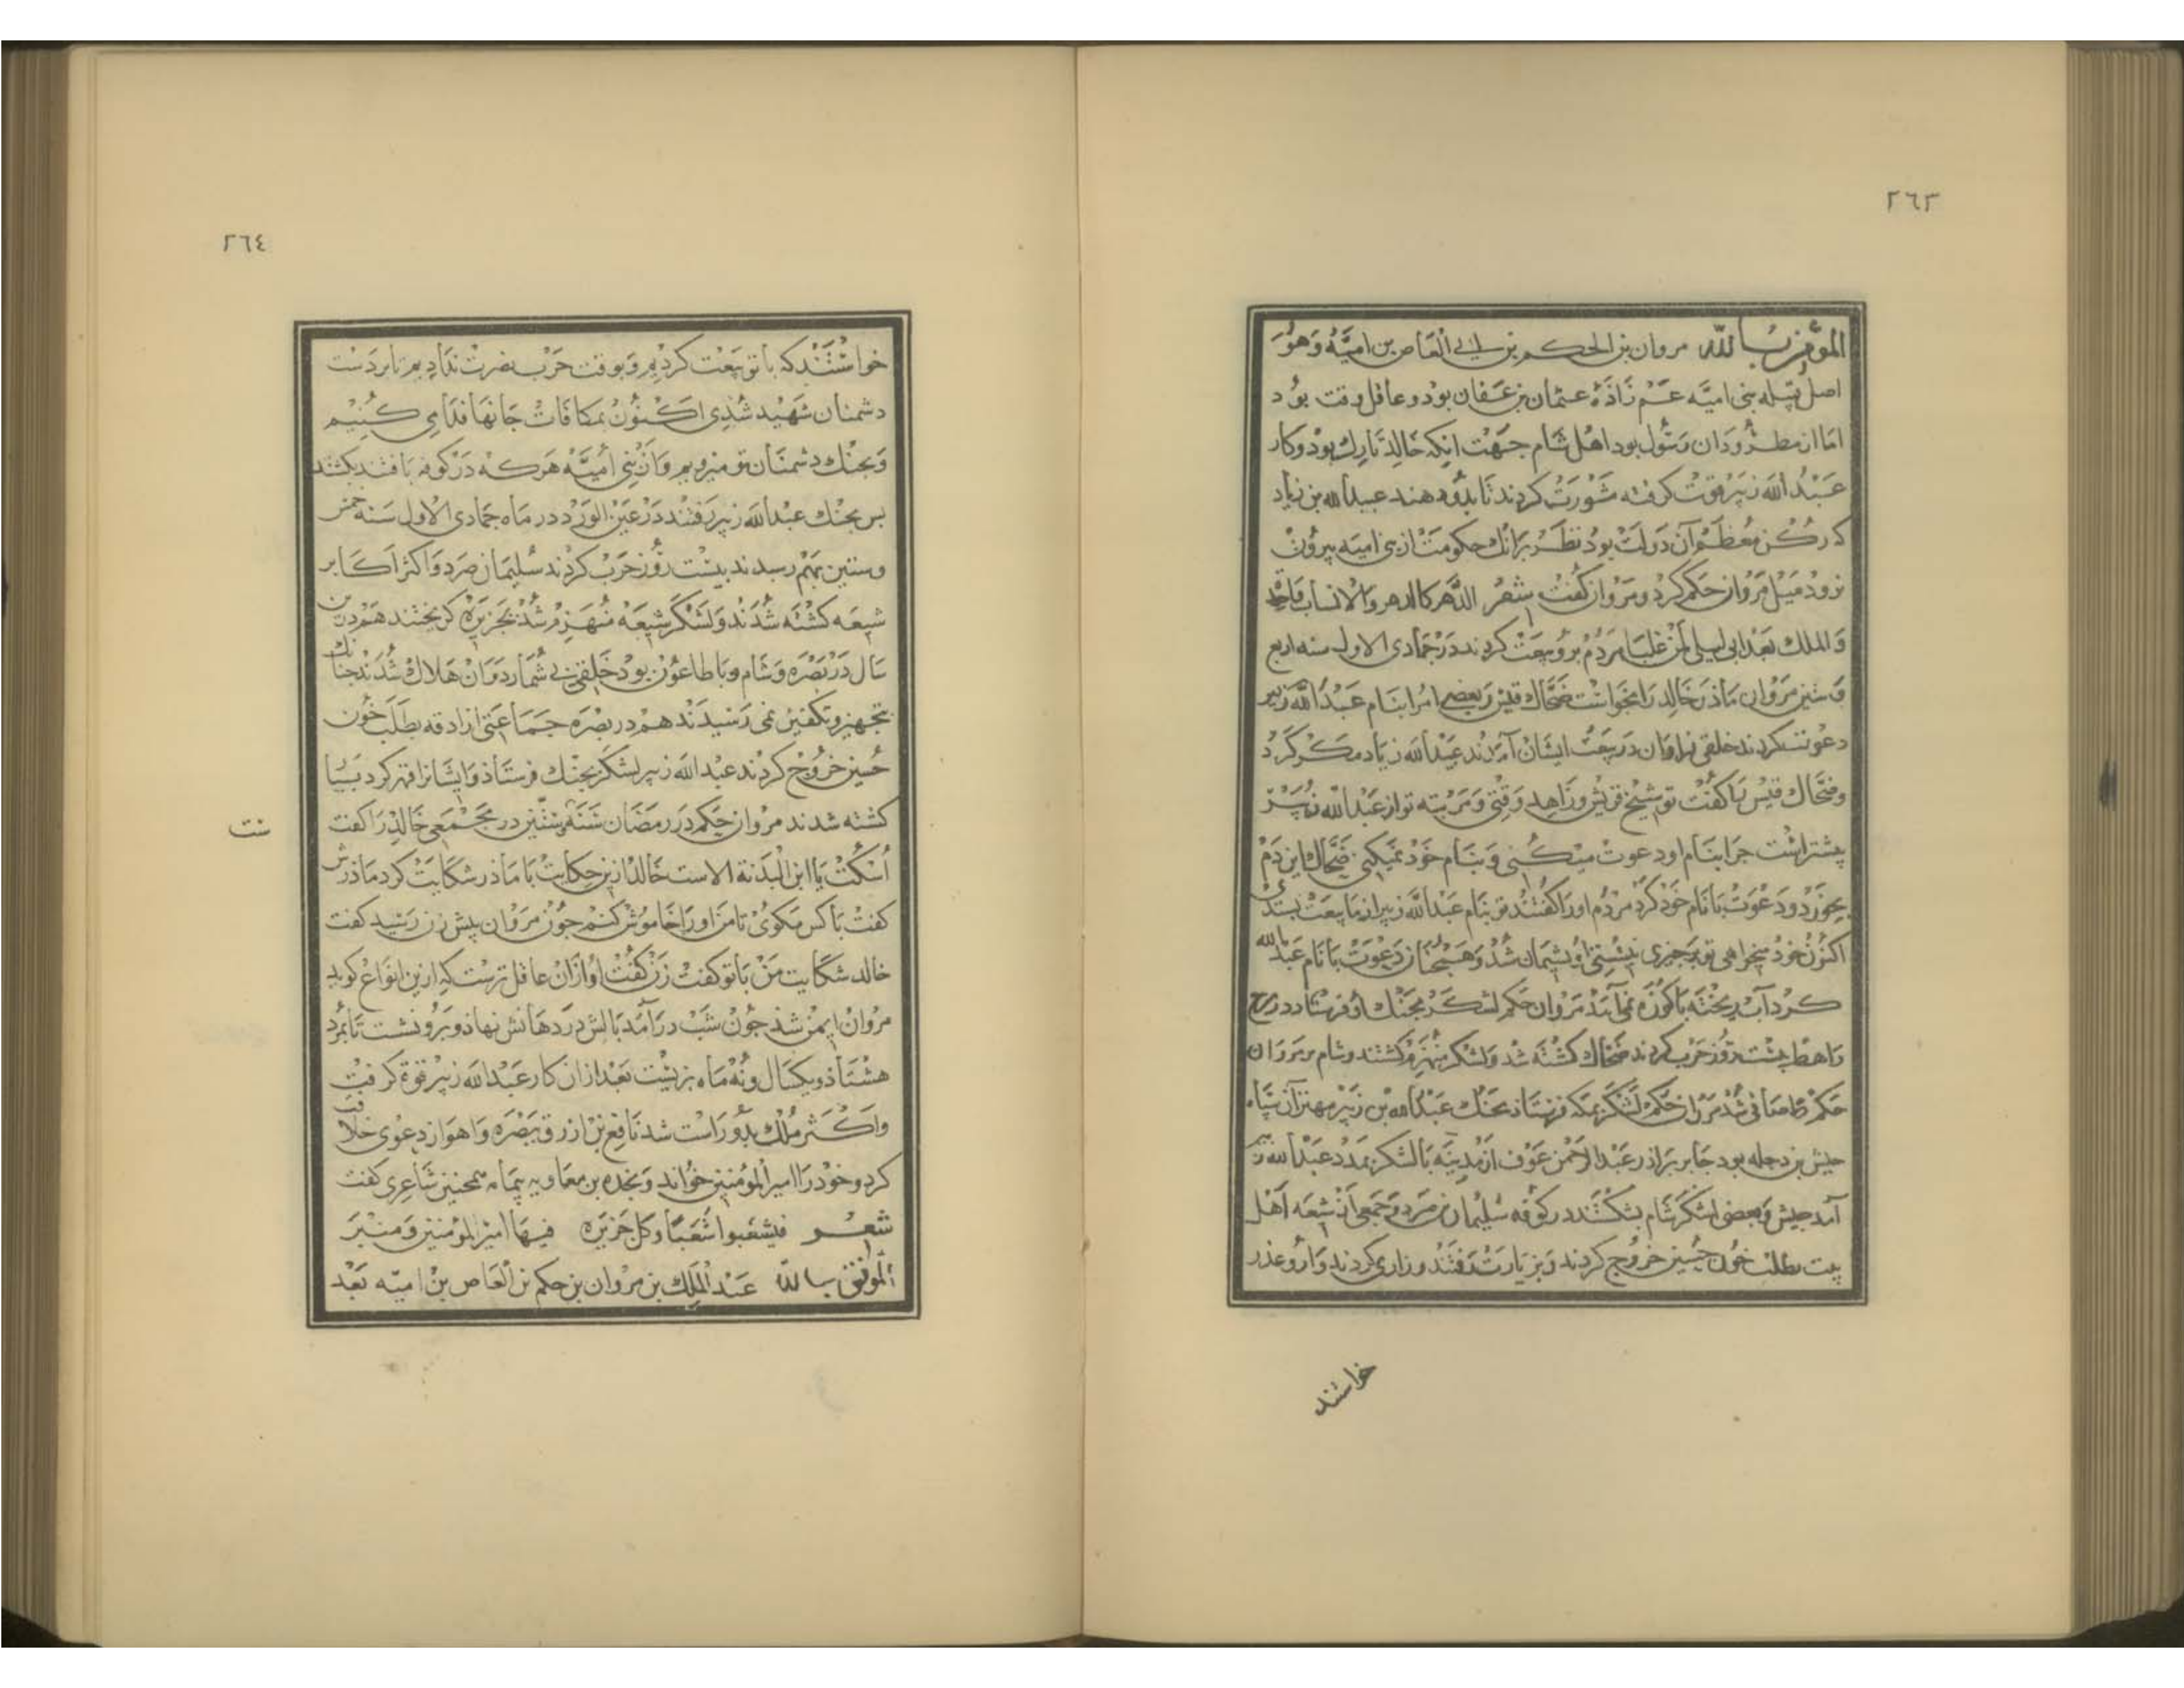 ٢٦٣
المؤتمن بالله مروان بن الحكم بن ابي العاص بن اميّة وَهُوَ
اصل قبيله بنى اميّه عم زاذهٔ عثمان بن عفّان بود و عاقل وقت بود
اما از مطرودان رسول بود اهل شام جهت انكه خالد تارك بود و كار
عبد الله زبير قوت كرفته شورت كردند تا بدو دهند عبيد الله بن زياد
كه ركن معظم آن دولت بود نظر برانك حكومت از بنى اميه بيرون
نرود ميل مروان حكم كرد و مروان كفت شعر الدهر كالدهر والانساب
والملك بعد ابى ليلى لمن غلبا مردم برو بيعت كردند در جمادى الاول سنه اربع
و ستين مروان ماذر خالد را بخواست ضحّاك قيس و بعضى امرا بنام عبد الله زبير
دعوت كردند خلقى فراوان در بيعت ايشان آمدند عبيد الله زياد مكر كرد
و ضحّاك قيس را كفت تو شيخ قريش و زاهد وقتى و مرتبه تو از عبد الله زبير
بيشتر است جرا بنام او دعوت ميكنى و بنام خود نميكنى ضحّاك اين دم
بخورد و دعوت با نام خود كرد مردم او را كفتند تو بنام عبد الله زبير از ما بيعت بستدى
اكنون خود ميخواهى تو بر جيزى نيستى او بشيمان شد و همجنان دعوت با نام عبد الله
كرد آب ريخته با كوزه نمى آمد مروان حكم لشكر بجنك او فرستاد در مرج
راهط بيست روز حرب كردند ضحاك كشته شد و لشكر منهزم كشتند و شام بر مروان
حكم صافى شد مروان حكم لشكر بمكه فرستاد بجنك عبد الله بن زبير مهتر آن سپاه
حبيش بن دجله بود جابر برادر عبد الرحمن عوف از مدينه با لشكر بمدد عبد الله زبير
آمد حبيش و بعضى لشكر شام بشكستند در كوفه سليمان بن صرد و جمعى از شيعه اهل
بيت بطلب خون حسين خروج كردند و بزيارت رفتند و زارى كردند و ازو عذر
خواستند
٢٦٤
خواستند كه با تو بيعت كرديم و بوقت حرب نصرت نداديم تا بر دست
دشمنان شهيد شدى اكنون بمكافات جانها فداى كنيم
و بجنك دشمنان تو ميرويم و از بنى اميّه هر كه در كوفه يافتند بكشتند
بس بجنك عبد الله زبير رفتند در عين الورد در ماه جمادى الاول سنه خمس
و ستين بهم رسيدند بيست روز حرب كردند سليمان صرد و اكثر اكابر
شيعه كشته شدند و لشكر شيعه منهزم شد بجزيره كريختند هم درين
سال در بصره و شام وبا طاعون بود خلقى بى شمار در وان هلاك شدند جنانك
بتجهيز و تكفين نمى رسيدند هم در بصره جماعتى ازارقه بطلب خون
حسين خروج كردند عبد الله زبير لشكر بجنك فرستاذ و ايشانرا قهر كرد بسيا
كشته شدند مروان حكم در رمضان سنه ستين در مجمعى خالد را كفت
ست
اسكت يا ابن البدنة الاست خالد ازين حكايت با ماذر شكايت كرد ماذرش
كفت با كس مكوى تا من او را خاموش كنم جون مروان پيش زن رسيد كفت
خالد شكايت من با تو كفت زن كفت او ازان عاقل ترست كه ازين انواع كويد
مروان ايمن شد جون شب در آمد بالش در دهانش نهاذ و برو نشست تا بمرد
هشتاذ و يكسال و نُه ماه بزيست بعد ازان كار عبد الله زبير قوة كرفت
و اكثر ملك بدو راست شد نافع بن ازرق ببصره و اهواز دعوى خلافت
كرد و خود را امير المؤمنين خواند و نجده بن معاويه بيمامه همجنين شاعرى كفت
شعر فيشعبوا شعبًا و كل جزيره فيها امير المؤمنين و منبر
الموفق بالله عبد الملك بن مروان بن حكم بن العاص بن اميّه بعد